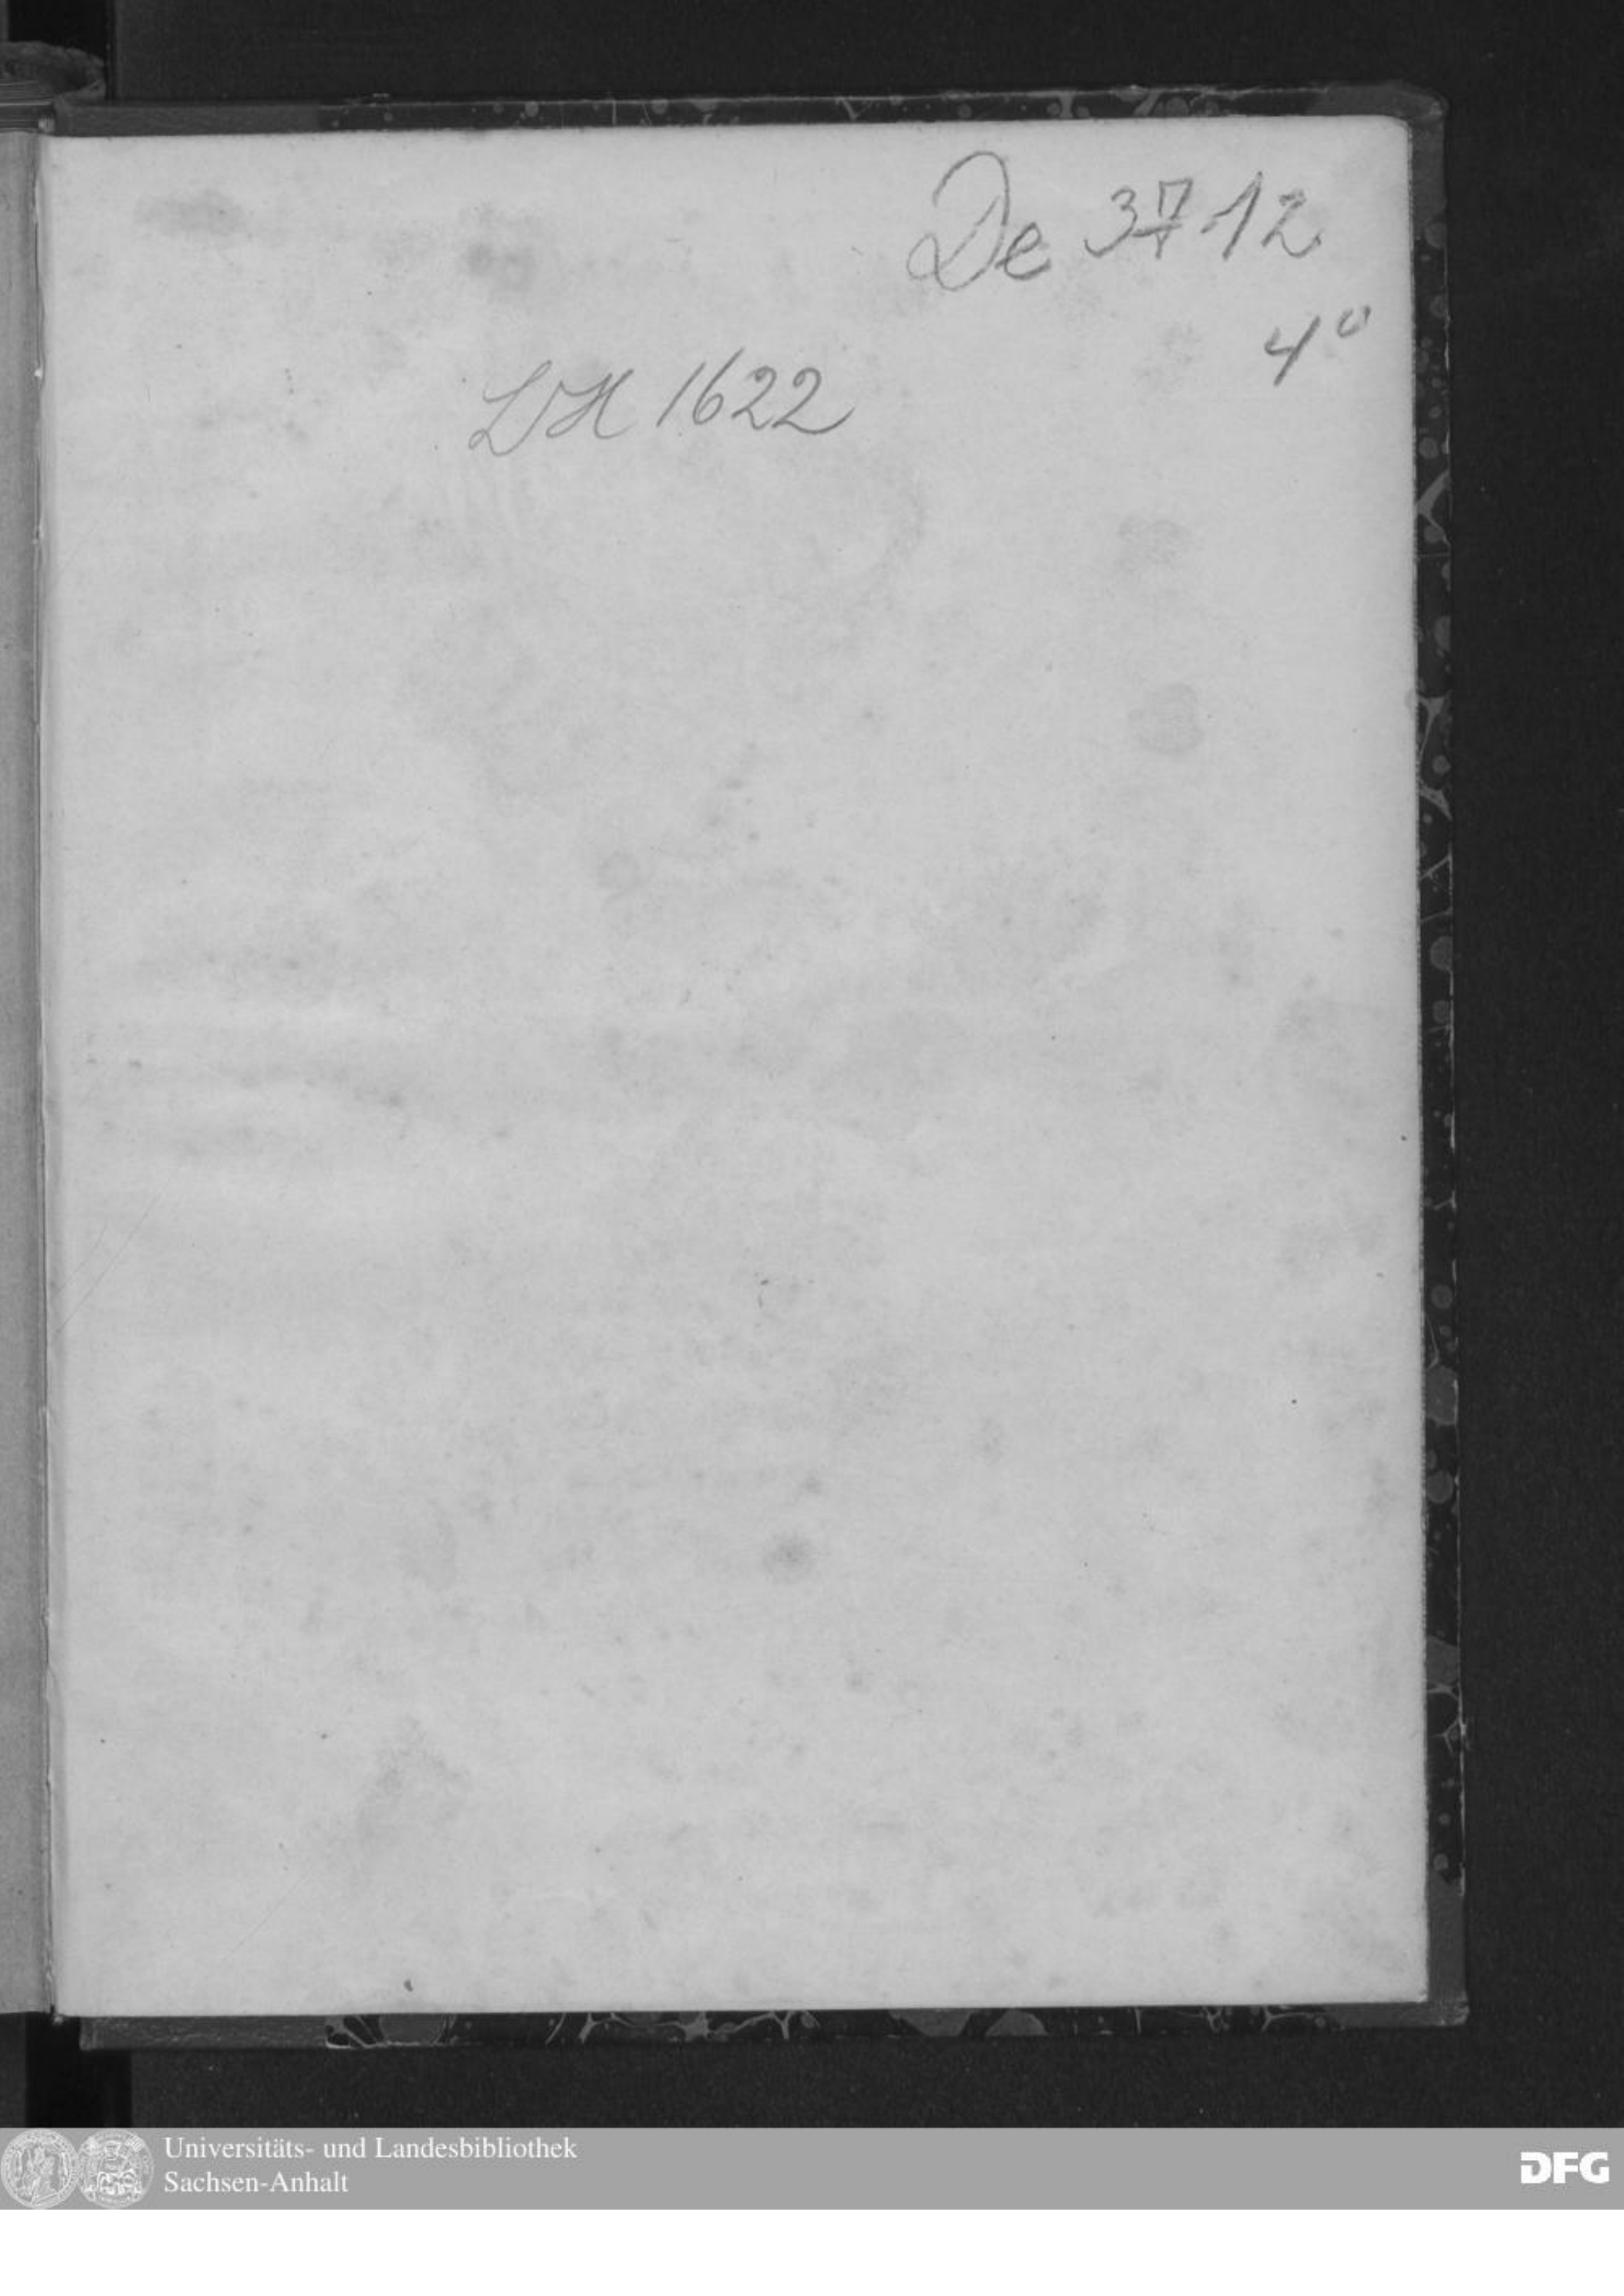 De 3712
4°
DH 1622
Universitäts- und Landesbibliothek
Sachsen-Anhalt
DFG